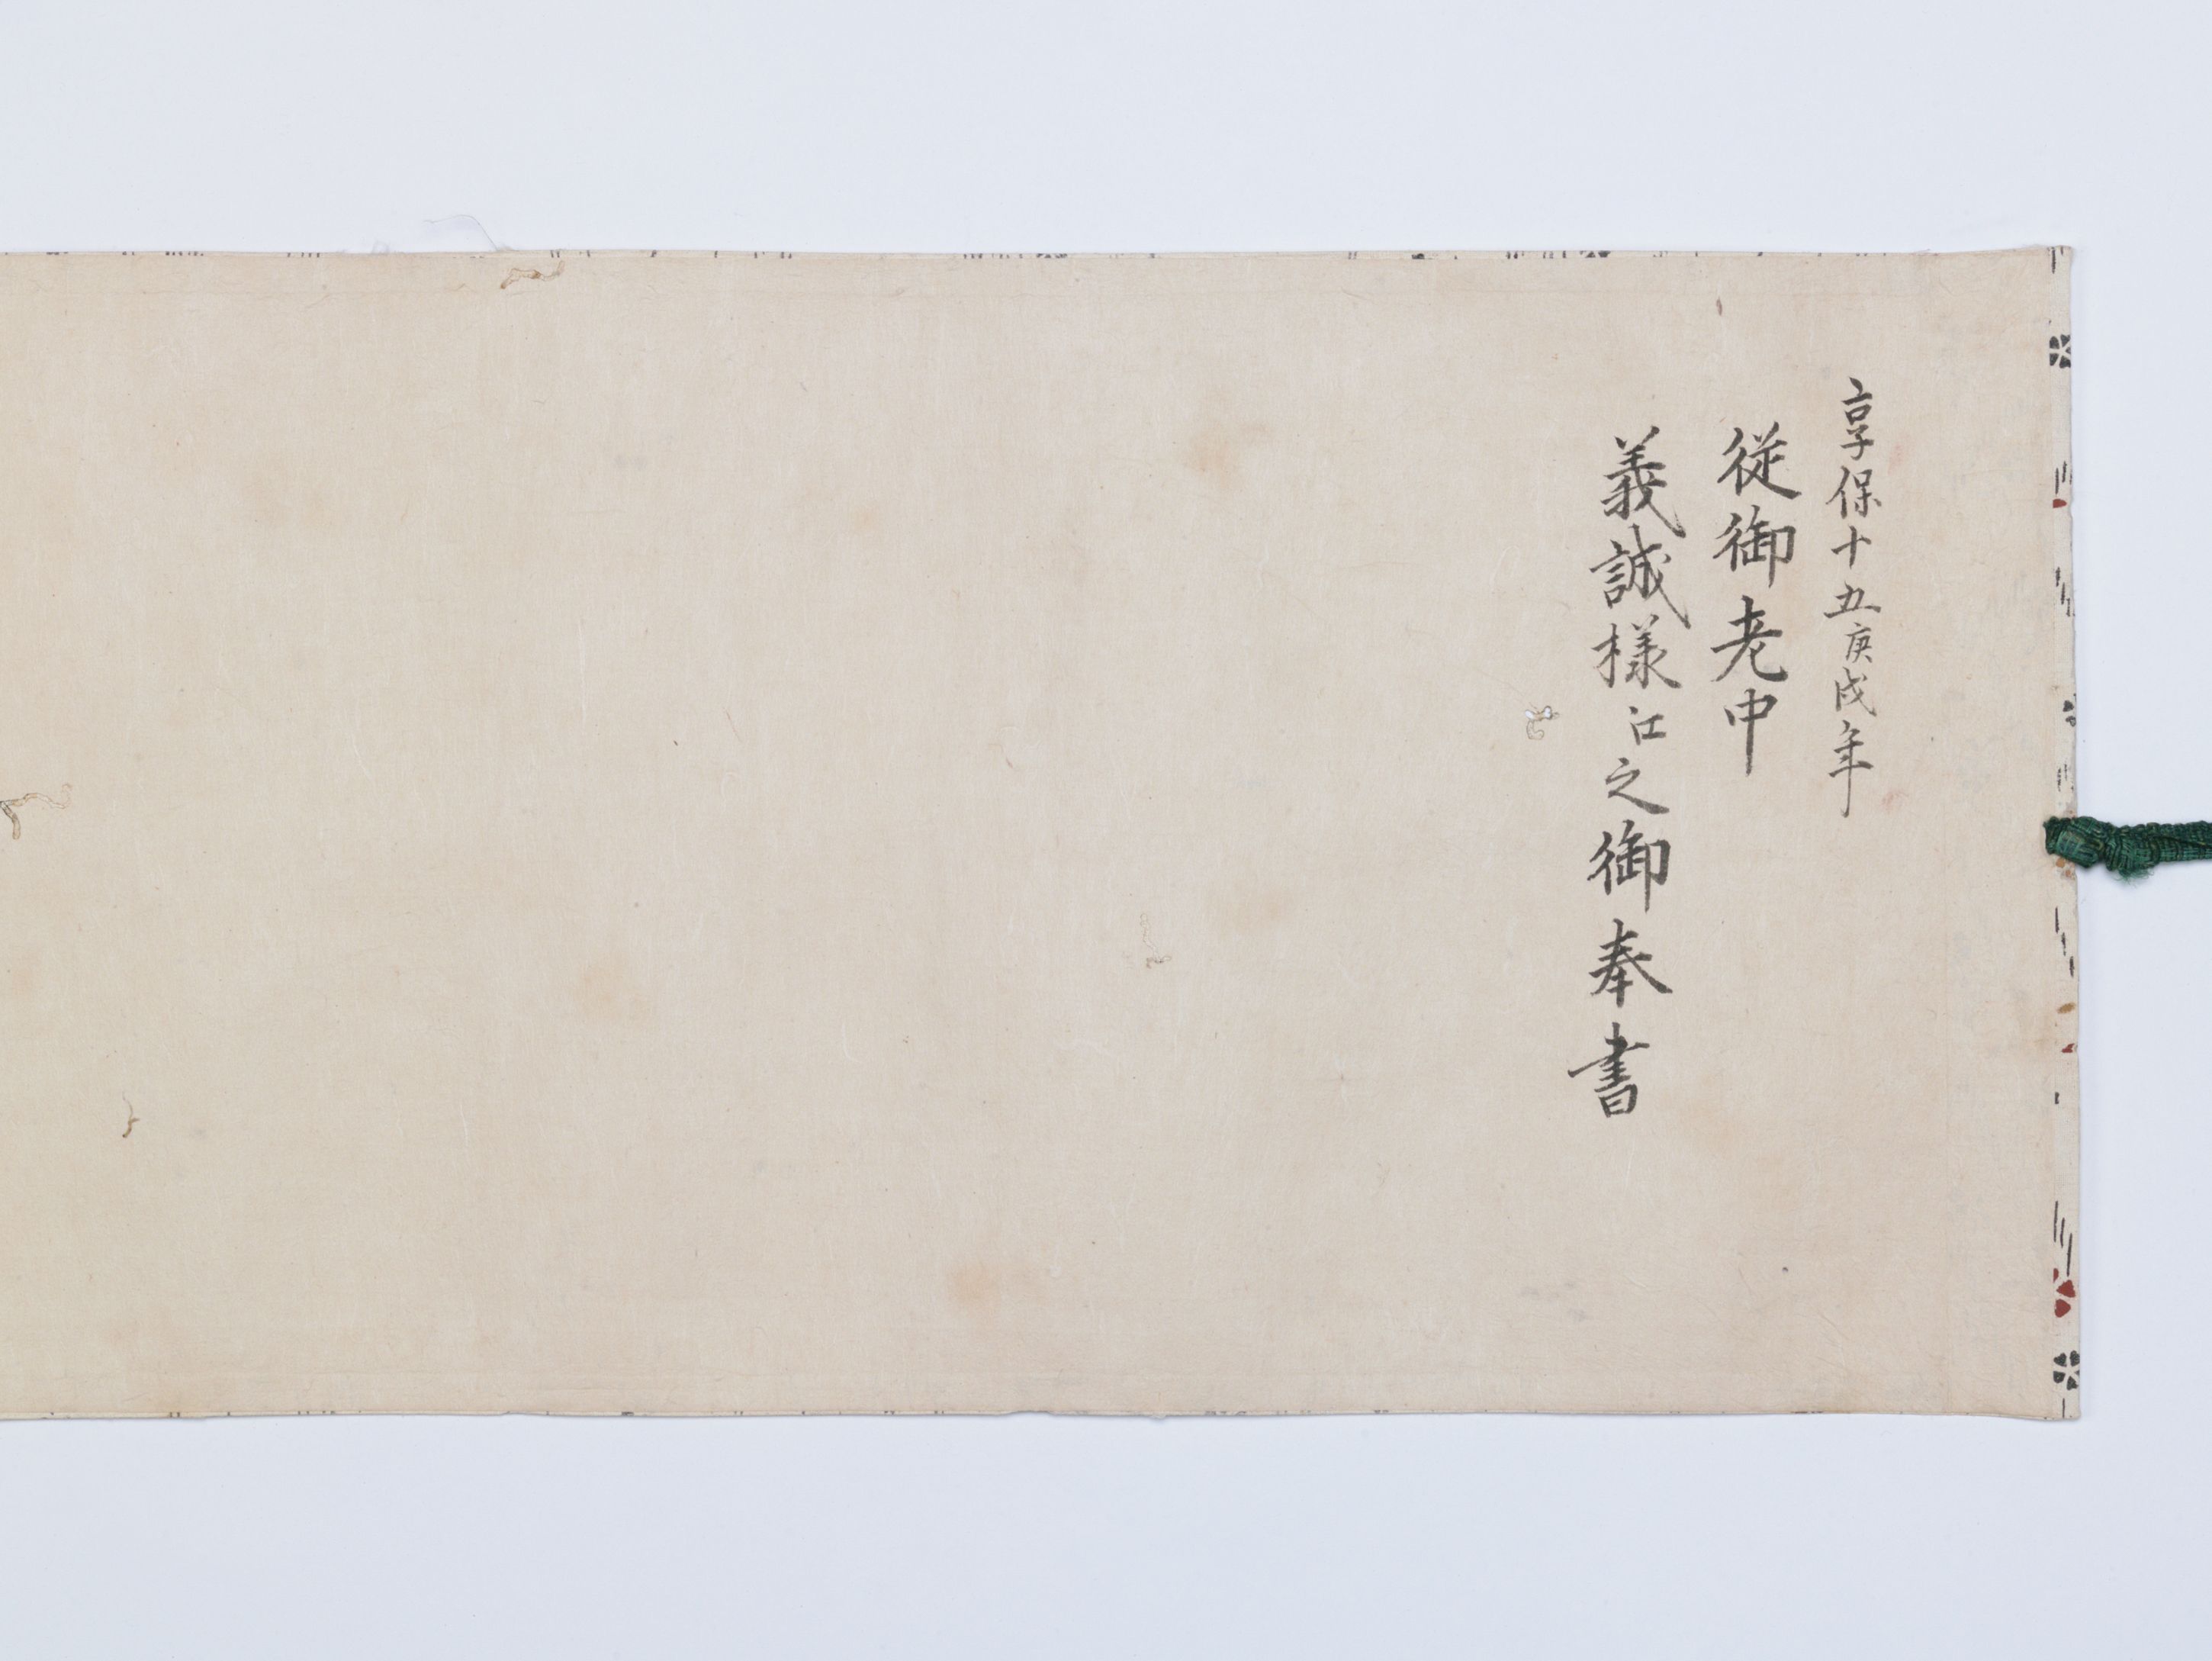 享保十五庚戌年
従御老中
義誠様江之御奉書